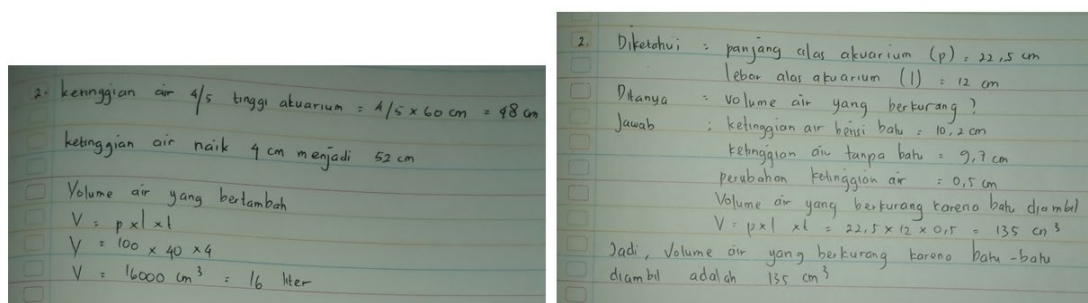 2. ketinggian air 4/5 tinggi akuarium = 4/5 x 60 cm = 48 cm
ketinggian air naik 4 cm menjadi 52 cm
Volume air yang bertambah
V = p x l x t
V = 100 x 40 x 4
V = 16000 cm³ = 16 liter
2. Diketahui : panjang alas akuarium (p) = 22,5 cm
lebar alas akuarium (l) = 12 cm
Ditanya : volume air yang berkurang ?
Jawab : ketinggian air berisi batu = 10,2 cm
ketinggian air tanpa batu = 9,7 cm
perubahan ketinggian air = 0,5 cm
Volume air yang berkurang karena batu diambil
V = p x l x t = 22,5 x 12 x 0,5 = 135 cm³
Jadi, volume air yang berkurang karena batu-batu
diambil adalah 135 cm³